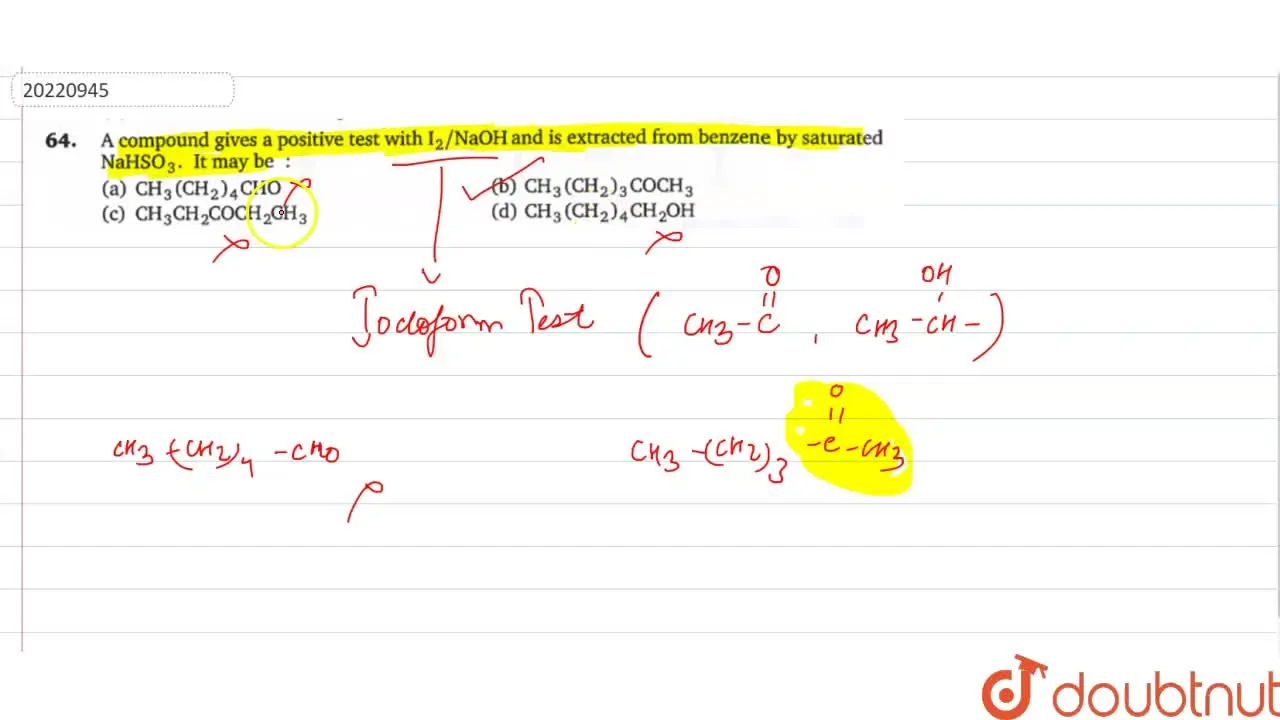 20220945
64. A compound gives a positive test with I₂/NaOH and is extracted from benzene by saturated
NaHSO₃. It may be :
(a) CH₃(CH₂)₄CHO (b) CH₃(CH₂)₃COCH₃
(c) CH₃CH₂COCH₂CH₃ (d) CH₃(CH₂)₄CH₂OH
O OH
Iodoform Test ( CH₃-C , CH₃-CH- )
O
CH₃-(CH₂)₄-CHO CH₃-(CH₂)₃-C-CH₃
doubtnut